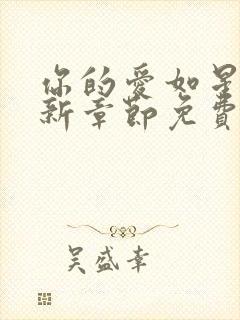 你的愛如星
新章節免費
吳盛幸